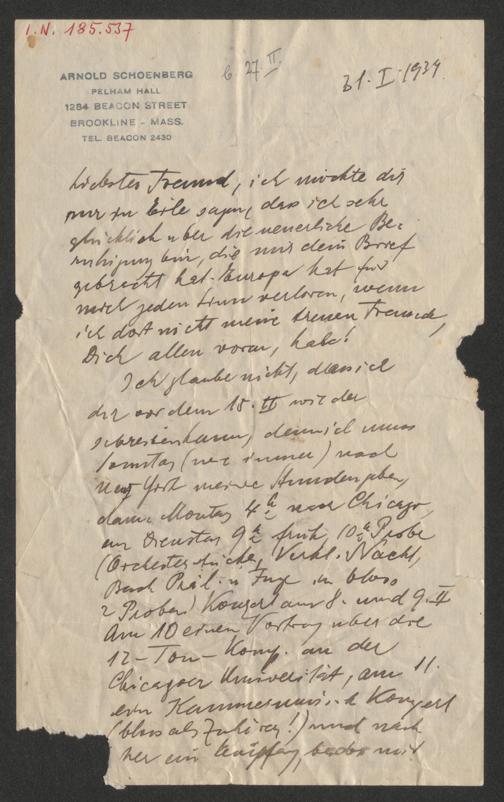 I.N. 185.537
b. 27. II.
31. I. 1934
ARNOLD SCHOENBERG
PELHAM HALL
1284 BEACON STREET
BROOKLINE - MASS.
TEL. BEACON 2430
Liebster Freund, ich möchte dir
nur in Eile sagen, dass ich sehr
glücklich über die neuerliche Be-
ruhigung bin, die mir dein Brief
gebracht hat. Europa hat für
mich jeden Sinn verloren, wenn
ich dort nicht meine treuen Freunde,
Dich allen voran, habe!
Ich glaube nicht, dass ich
dir vor dem 15. II wieder
schreiben kann, denn ich muss
Samstag (wie immer) nach
New York meine Stunden geben,
dann Montag 4h nach Chicago,
an Dienstag 9h früh, 10h Probe
(Orchesterstücke, Verkl. Nacht,
Bach Präl. u Fuge in bloss
2 Proben) Konzert am 8. und 9. II
Am 10 einen Vortrag über die
12-Ton-Komp. an der
Chicagoer Universität, am 11.
ein Kammermusik Konzert
(bloss als Zuhörer!) und nach
her ein Empfang, bei dem mir